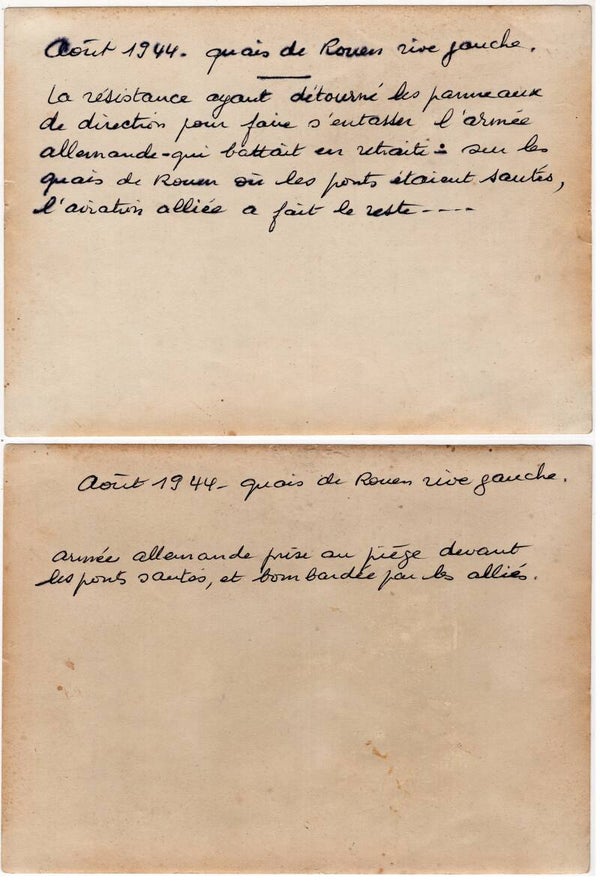 Août 1944. quais de Rouen rive gauche.
La résistance ayant détourné les panneaux
de direction pour faire s'entasser l'armée
allemande - qui battait en retraite - sur les
quais de Rouen où les ponts étaient sautés,
l'aviation alliée a fait le reste ----
Août 1944 - quais de Rouen rive gauche.
armée allemande prise au piège devant
les ponts sautés, et bombardée par les alliés.